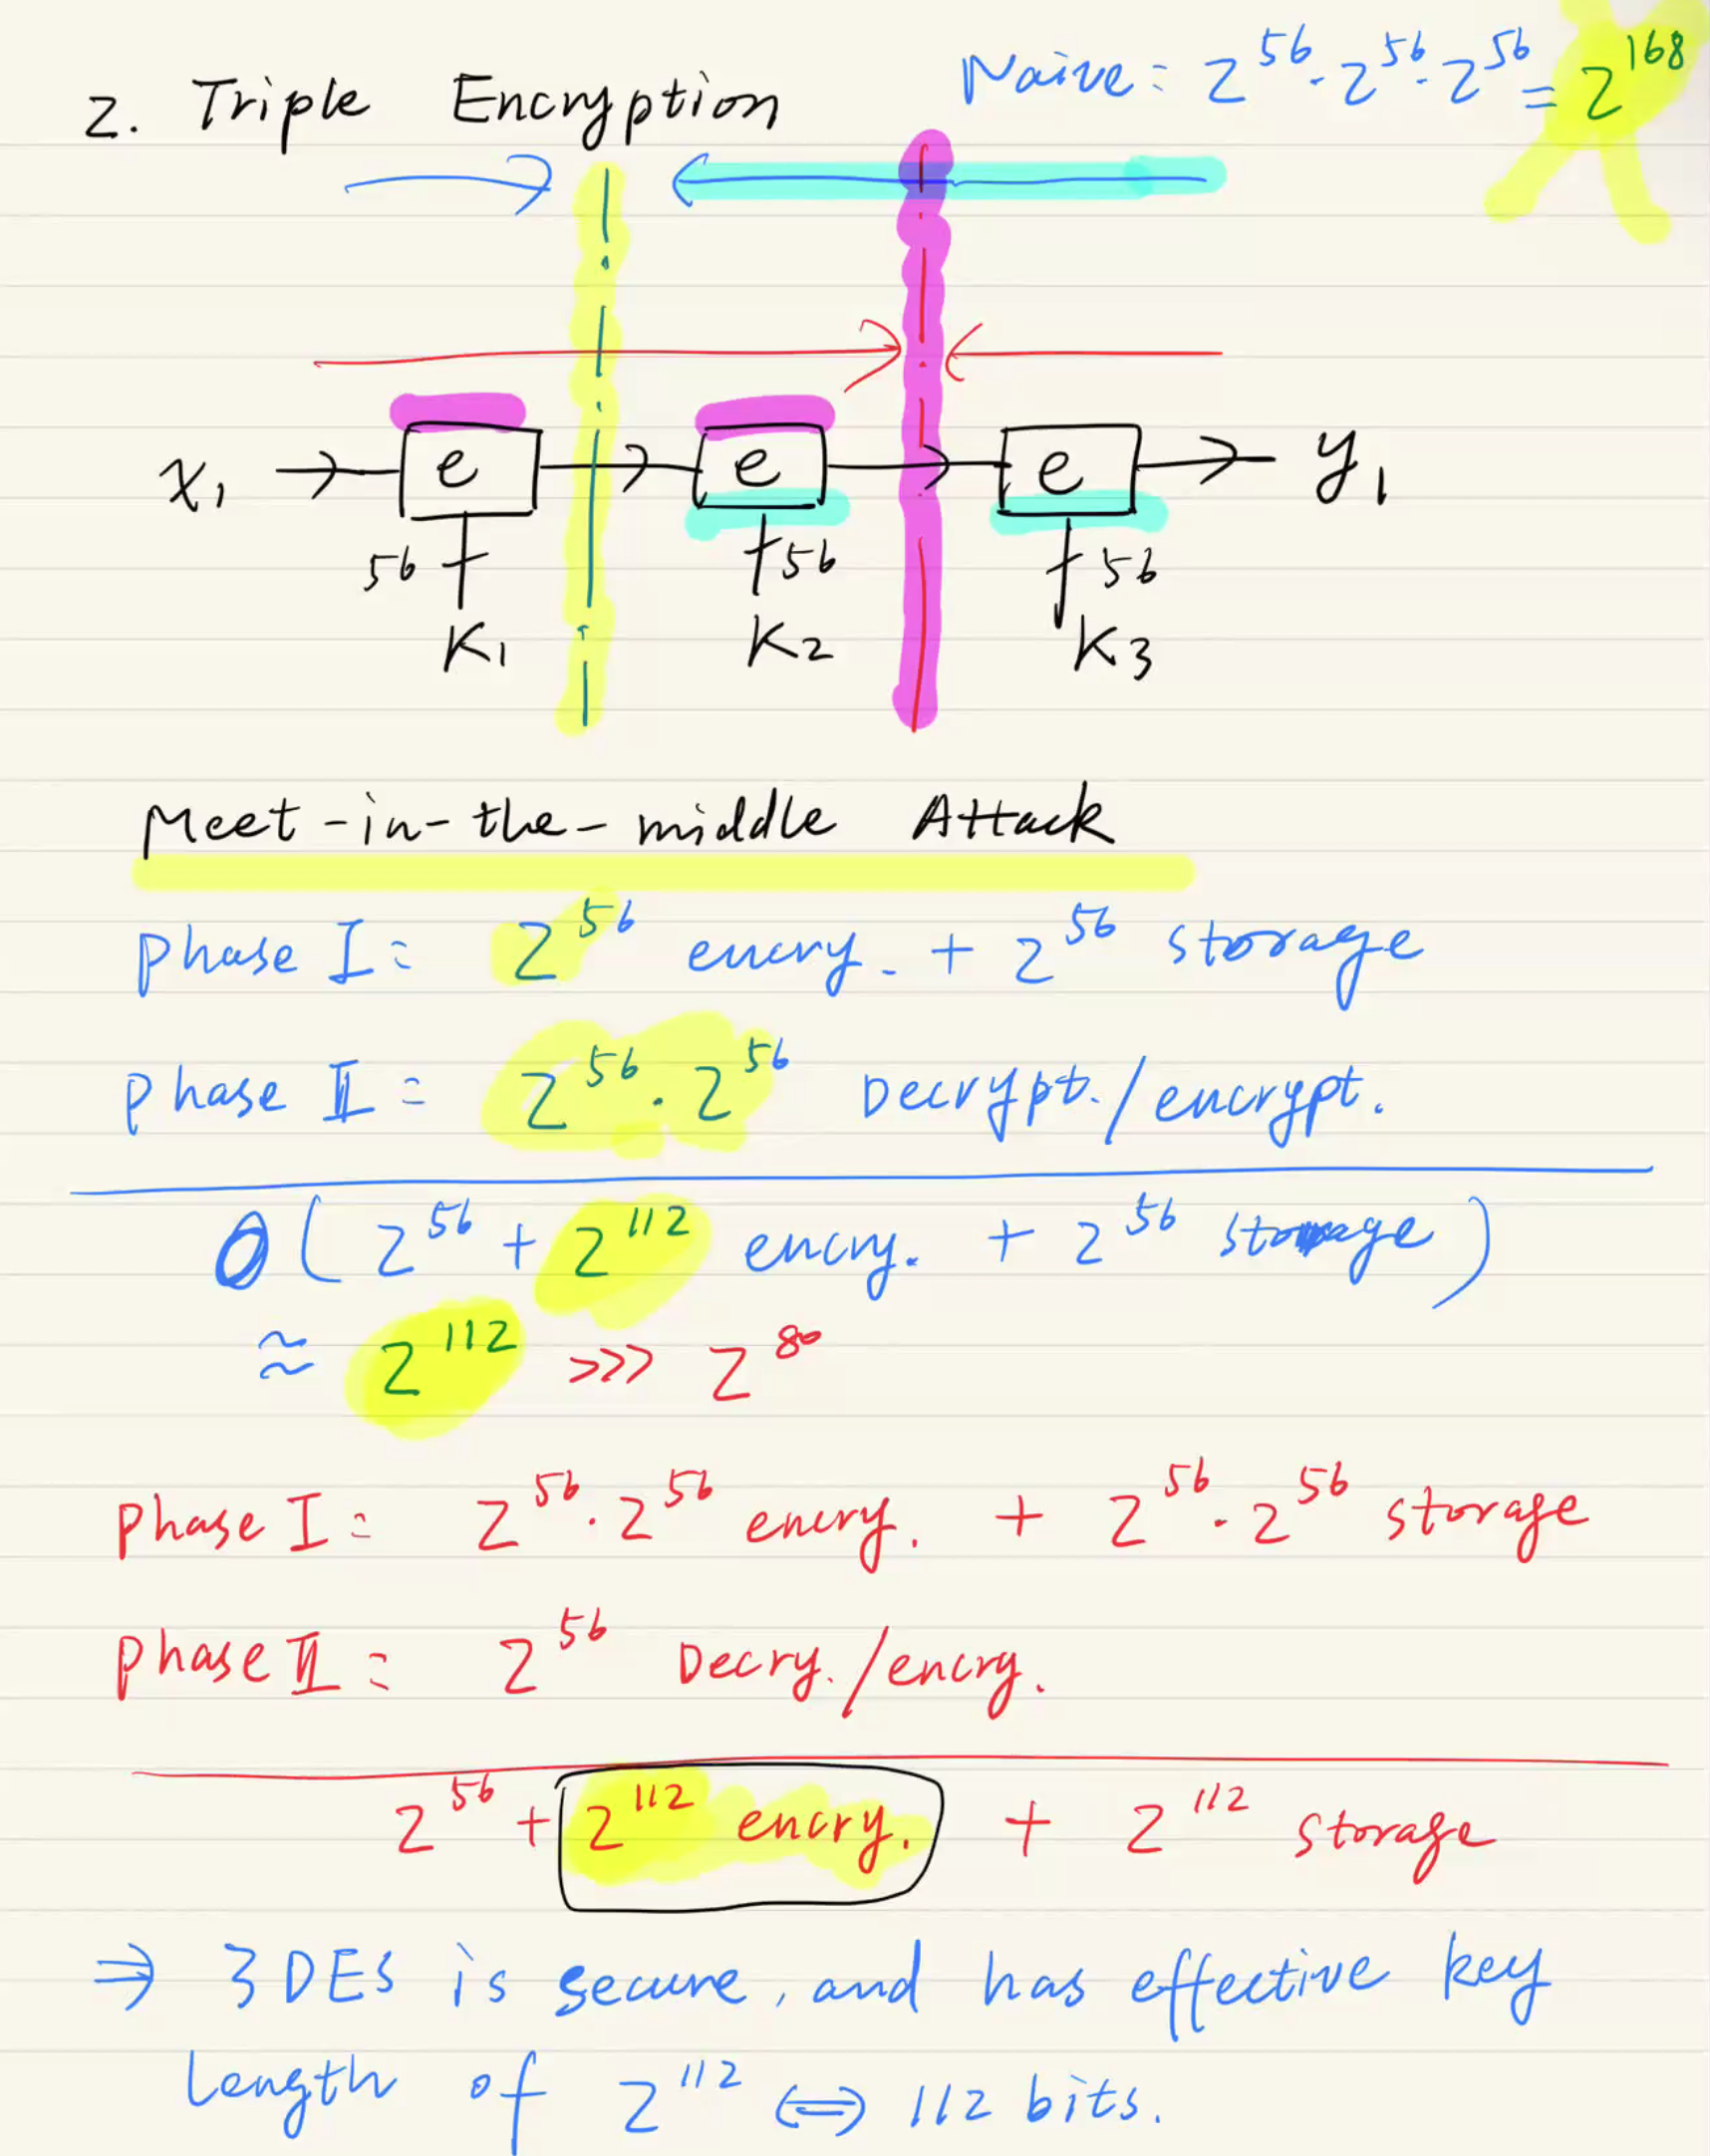 Naive: 2^56 · 2^56 · 2^56 = 2^168
2. Triple Encryption
x₁ → e → e → e → y₁
56 56 56
K₁ K₂ K₃
Meet-in-the-middle Attack
Phase I: 2^56 encry. + 2^56 storage
Phase II: 2^56 · 2^56 Decrypt./encrypt.
O(2^56 + 2^112 encry. + 2^56 storage)
≈ 2^112 >>> 2^80
Phase I: 2^56 · 2^56 encry. + 2^56 · 2^56 storage
Phase II: 2^56 Decry./encry.
2^56 + 2^112 encry. + 2^112 storage
⇒ 3DES is secure, and has effective key
length of 2^112 ⇔ 112 bits.